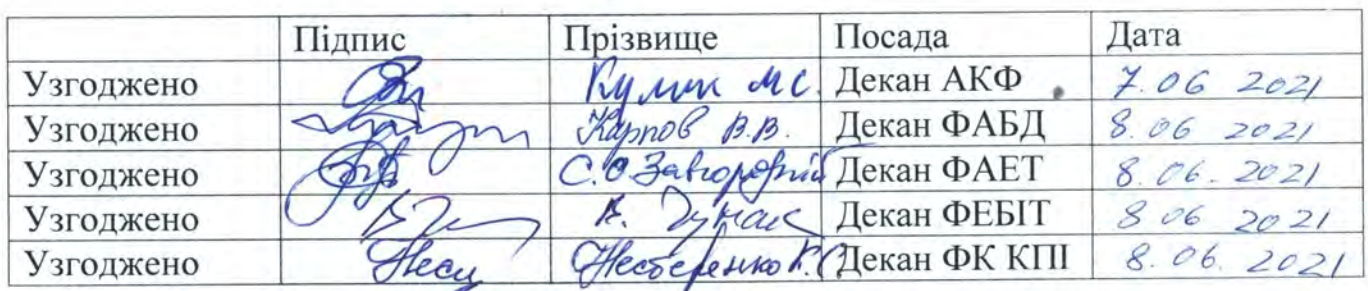 Підпис Прізвище Посада Дата
Узгоджено Кулик М.С. Декан АКФ 7.06 2021
Узгоджено Карпов В.В. Декан ФАБД 8.06 2021
Узгоджено С.О Завгородній Декан ФАЕТ 8.06. 2021
Узгоджено Декан ФЕБІТ 8 06 2021
Узгоджено Нестеренко К.С. Декан ФК КПІ 8.06. 2021